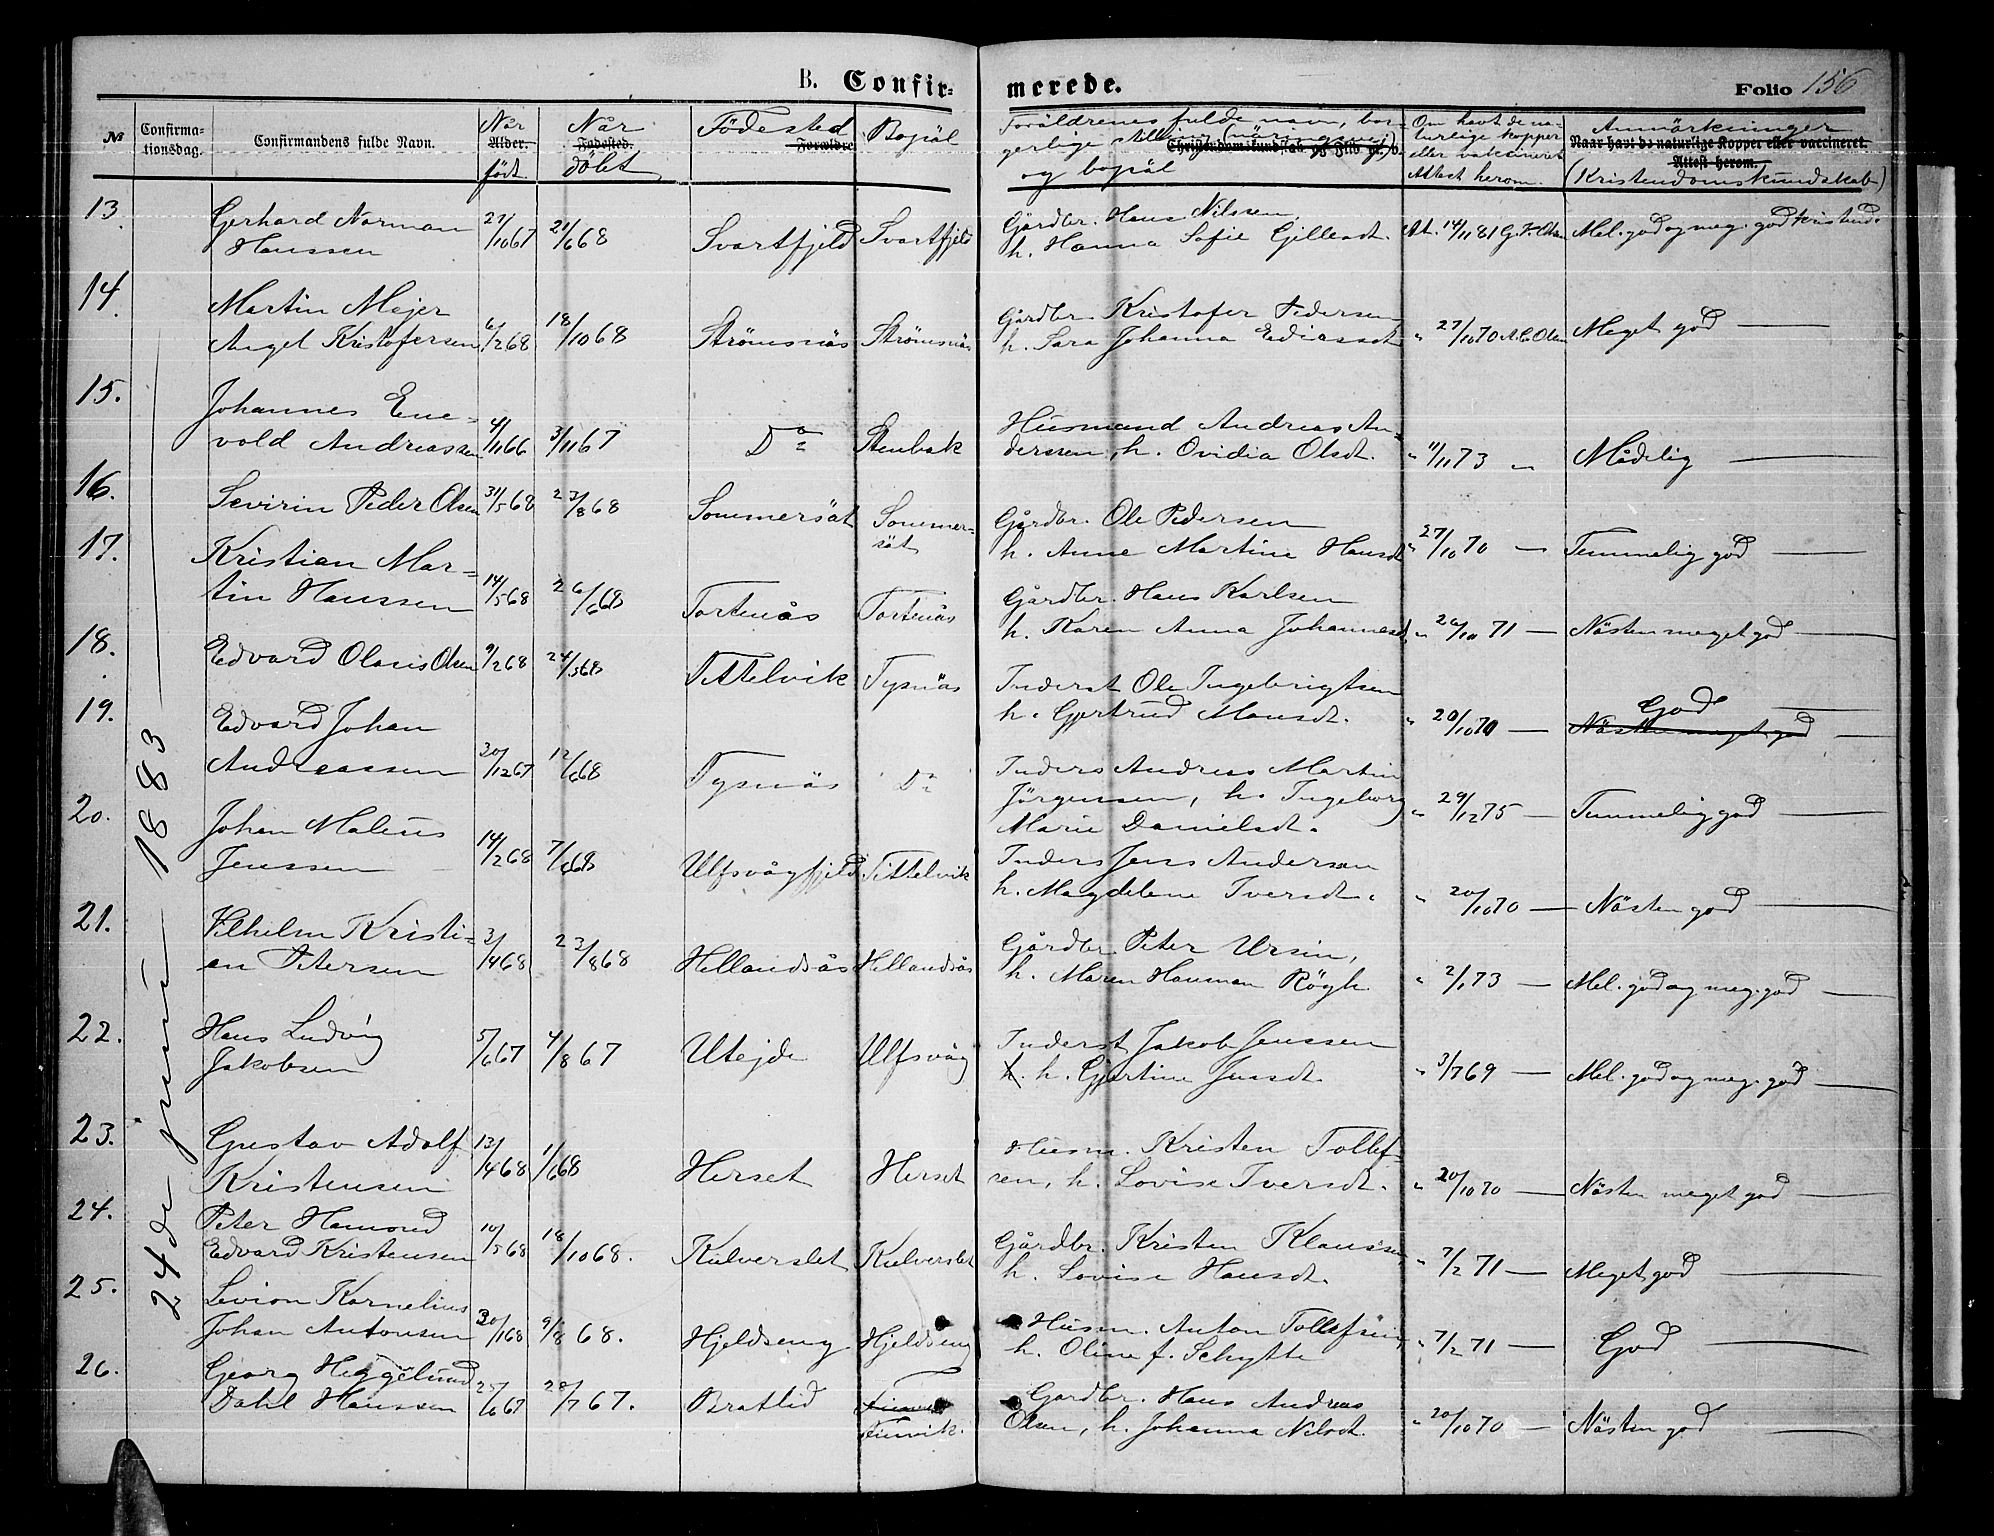 B. Confirmerede.
Folio 156
№ Confirmationsdag. Confirmandens fulde Navn. Når Alder. født Når Fødested. döbt Födested Forældre Bopäl Foräldrenes fulde navn, borgerlige stilling (näringsvei) og bopäl Christendomskundskab og Flid &c. Om havt de naturlige kopper eller vakcineret Attest herom. Anmärkninger Naar havt de naturlige Kopper eller vaccineret. Attest herom. (Kristendomskundskab)
24de juni 1883
13. Gerhard Norman Hanssen 27/10 67 21/6 68 Svartfjeld Svartfjeld Gårdbr. Hans Nilssen, h. Hanna Sofie Gilleadt. At. 14/11 81 G. K. Olsen Mel. god og meg. god kristend.
14. Martin Mejer Angel Kristofersen 6/2 68 18/10 68 Strömsnäs Strömsnäs Gårdbr. Kristofer Pedersen h. Sara Johanna Ediasdt " 27/10 70 A. C. Olsen Meget god —
15. Johannes Enevold Andreassen 4/11 66 3/11 67 Do Stenbak Husmand Andreas Anderssen, h. Ovidia Olsdt. " 11/11 73 — Mådelig —
16. Sevirin Peder Olsen 31/5 68 23/8 68 Sommersät Sommersät Gårdbr. Ole Pedersen h. Anne Martine Hansdt " 27/10 70 — Temmelig god —
17. Kristian Martin Hanssen 14/5 68 26/6 68 Tortenäs Tortenäs Gårdbr. Hans Karlsen h. Karen Anna Johannesd. " 26/10 71 — Nästen meget god —
18. Edvard Olaus Olsen 9/2 68 24/5 68 Tittelvik Tysnäs Inderst Ole Ingebrigtsen h. Gjertrud Mansdt. " 20/10 70 — God Nästen meget god —
19. Edvard Johan Andreassen 30/12 67 12/6 68 Tysnäs Do Inders Andreas Martin Jörgenssen, h. Ingeborg Marie Danielsdt. " 29/12 75 — Temmelig god —
20. Johan Maleus Jenssen 14/2 68 7/6 68 Ulfsvågfjeld Tittelvik Inders Jens Andersen h. Magdelene Iversdt. " 20/10 70 — Nästen god —
21. Vilhelm Kristian Petersen 3/4 68 23/8 68 Hellandsås Hellandsås Gårdbr. Peter Ursin, h. Maren Hanman Rögh. " 2/1 73 — Mel. god og meg. god —
22. Hans Ludvig Jakobsen 5/6 67 4/8 67 Utejde Ulfsvåg Inderst Jakob Jenssen h. h. Gjertine Jensdt. " 3/7 69 — Mel. god og meg. god —
23. Gustav Adolf Kristensen 13/4 68 1/6 68 Herset Herset Husm. Kristen Tollefsen, h. Lovise Iversdt. " 20/10 70 — Nästen meget god —
24. Peter Hamond Edvard Kristensen 10/5 68 18/10 68. Kulverslet Kulverslet Gårdbr. Kristen Klaussen h. Lovise Hansdt. " 7/2 71 — Meget god —
25. Levion Kornelius Johan Antonsen 30/1 68 9/8 68. Hjeldseng Hjeldseng Husm. Anton Tollefsen, h. Oline f. Schytte " 7/2 71 — God —
26. Georg Heggelund Dahl Hanssen 25/6 67 28/7 67. Bratlid Finvik. Gårdbr. Hans Andreas Olsen, h. Johanna Nilsdt. " 20/10 70 — Nästen god —